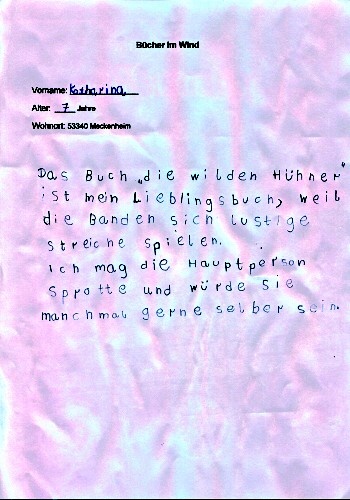 Bücher im Wind
Vorname: Katharina
Alter: 7 Jahre
Wohnort: 53340 Meckenheim
Das Buch „die wilden Hühner"
ist mein Lieblingsbuch, weil
die Banden sich lustige
streiche spielen.
ich mag die Hauptperson
Sprotte und würde sie
manchmal gerne selber sein.